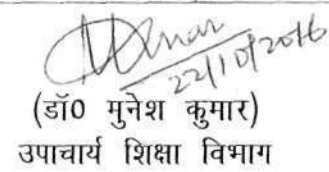 22/10/2016
(डॉ0 मुनेश कुमार)
उपाचार्य शिक्षा विभाग